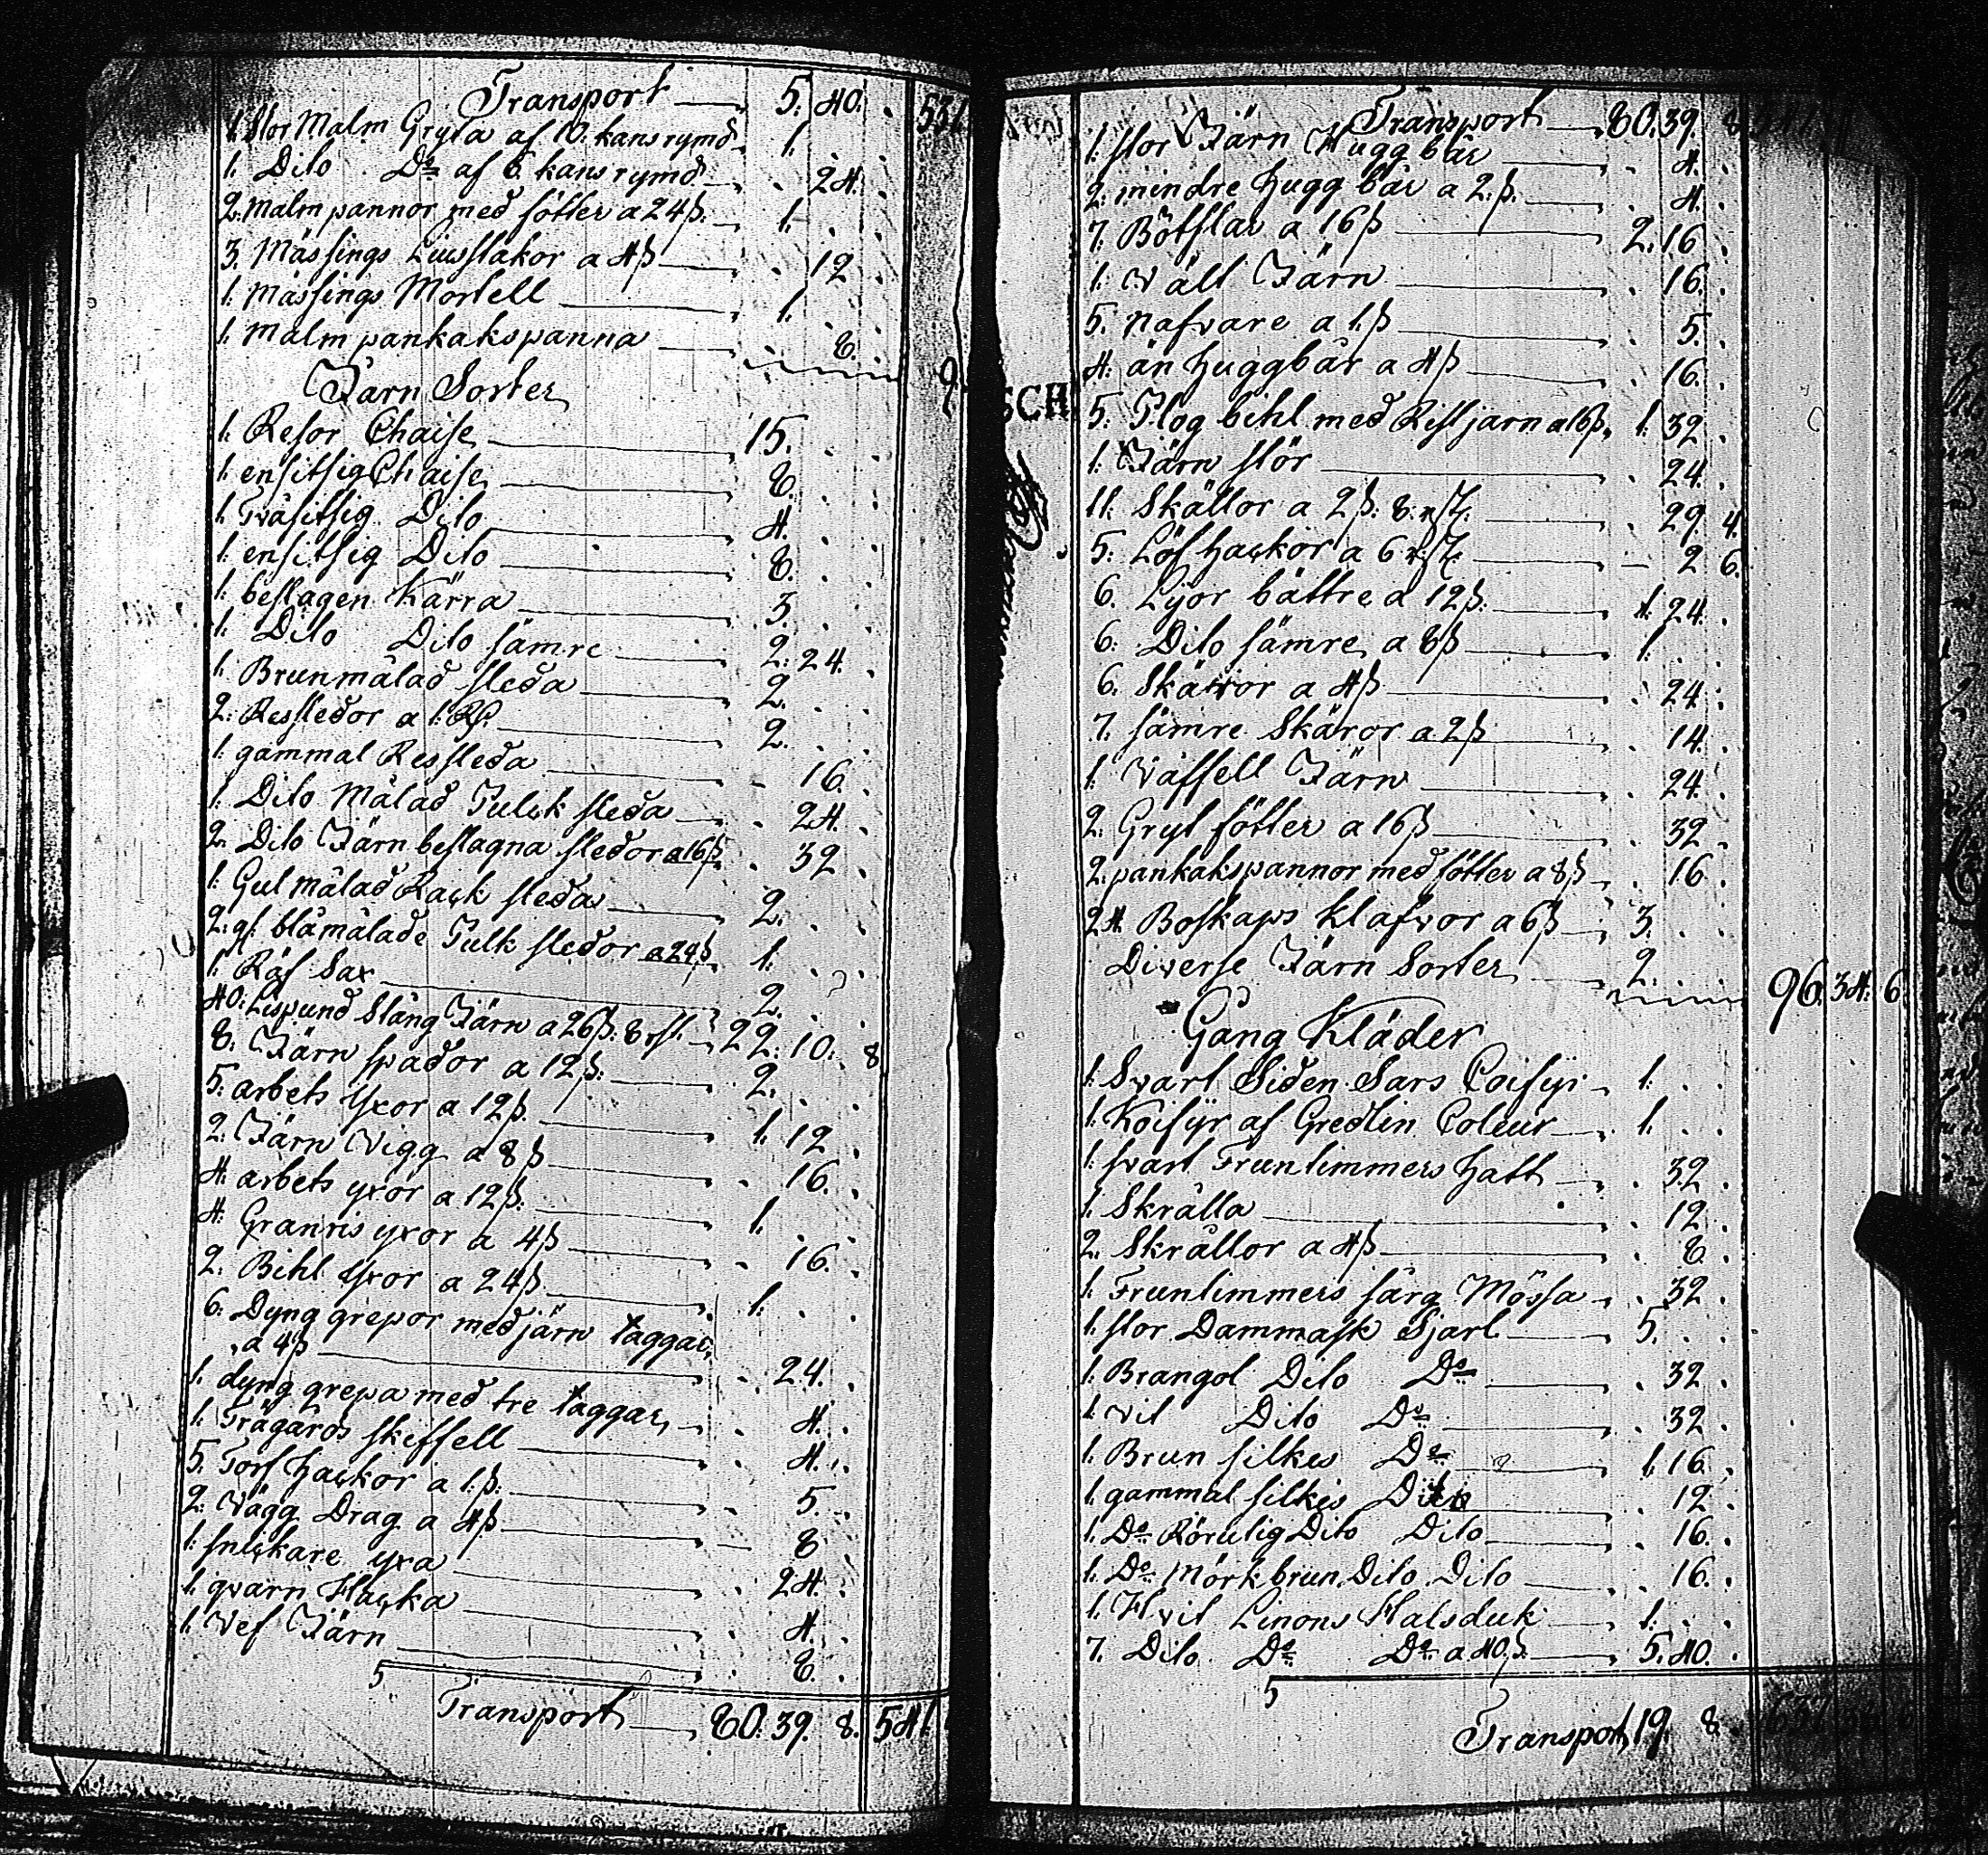 Transport 5. 40. . 531
1. Stor Malm Gryta af 10. kans rymd 1. . .
1. Dito Do af 6 kans rymd . 24. .
2. Malm pannor med fötter a 24 ß. 1. . .
3. Mässings Liusstakor a 4 ß . 12 .
1. Mässings Mortell 1. . .
1. Malm pankakspanna . 8. .
Järn Sorter
1. Resor Chaise 15. . .
1. ensitsig Chaise 8. . .
1. Tväsitsig Dito 4. . .
1. ensitsig Dito 8. . .
1. beslagen Kärra 3. . .
1. Dito Dito sämre 2. 24. .
1. Brunmålad sleda 2. . .
2. Ressledor a 1. Rd. 2. . .
1. gammal Ressleda - 16. .
1. Dito Målad Pulck sleda . 24. .
2. Dito Järn beslagna sledor a 16 ß . 32 .
1. Gul målad Rack sleda 2. . .
2. gl. blåmålade Pulk sledor a 24 ß 1. . .
1. Räf Sax 2. . .
40. Lispund Stång Järn a 26 ß. 8 rst. 22. 10. 8
8. Järn spador a 12 ß. 2. . .
5. arbets Yxor a 12 ß. 1. 12 .
2. Järn Vigg a 8 ß . 16. .
4. arbets yxor a 12 ß. 1. . .
4. Granris yxor a 4 ß . 16. .
2. Bihl Yxor a 24 ß 1. . .
6. Dyng grepor med järn taggar
a 4 ß . 24. .
1. dyng grepa med tre taggar . 4. .
1. Trägårds skeffell . 4. .
5. Torf hackor a 1. ß. . 5. .
2. Vägg Drag a 4 ß - 8 .
1. snickare yxa . 24. .
1. qvarn Hacka . 4. .
1. Vef Järn . 8. .
Transport 80. 39. 8. 541
Transport 80. 39. 8
1. stor Järn Hugg bär . 4. .
2. mindre hugg bär a 2. ß. . 4. .
7. Bötslar a 16 ß 2. 16 .
1. Väll Järn . 16. .
5. nafvare a 1. ß . 5. .
4. än huggbår a 4 ß . 16. .
5. Plog bihl med Rist jarn a 16 ß. 1. 32 .
1. Järn stör . 24. .
11. Skällor a 2 ß. 8. rst. . 29. 4.
5. Löf hackor a 6 rst. - 2 6.
6. Lijor bättre a 12 ß. 1. 24. .
6. Dito sämre a 8 ß 1. . .
6. Skäror a 4 ß . 24. .
7. sämre Skäror a 2 ß . 14. .
1. Våffell Järn . 24. .
2. Gryt fötter a 16 ß . 32 .
2. pankakspannor med fötter a 8 ß . 16 .
24 Boskaps klafvor a 6 ß 3. . .
Diverse Järn Sorter 2. . . 96. 34. 6
Gång Kläder
1. Svart Siden Sars Coisyr 1. . .
1. Koisyr af Gredlin Coleur 1. . .
1. svart Fruntimmers hatt . 32 .
1. Skrålla . 12 .
2. Skrållor a 4 ß . 8 .
1. Fruntimmers färg Mössa . 32 .
1. stor Dammask Sjarl 5. . .
1. Brangol Dito Do . 32 .
1. vit Dito Do . 32 .
1. Brun silkes Do 1. 16 .
1. gammal silkes Dito . 12 .
1. Do Rörulig Dito Dito . 16. .
1. Do Mörk brun Dito Dito . 16. .
1. Hvit Linons Halsduk 1. . .
7. Dito Do Do a 40. ß. 5. 40. .
Transport 19. 8. .